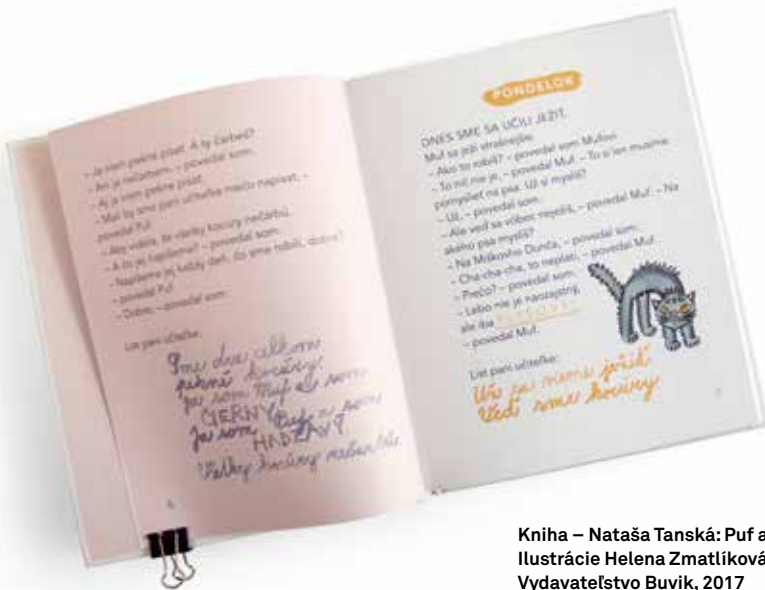 – Ja viem pekne písať. A ty čarbeš?
– Ani ja nečarbem, – povedal som.
– Aj ja viem pekne písať.
– Mali by sme pani učiteľke niečo napísať, –
povedal Puf.
– Aby videla, že všetky kocúry nečarbú.
– A čo jej napíšeme? – povedal som.
– Napíšeme jej každý deň, čo sme robili, dobre?
– povedal Puf.
– Dobre, – povedal som.
List pani učiteľke:
Sme dva celkom
pekné kocúry.
Ja som Muf a som
ČIERNY.
Ja som Puf a som
HRDZAVÝ
Všetky kocúry nečarbú.
6
PONDELOK
DNES SME SA UČILI JEŽIŤ.
Muf sa ježí strašnejšie.
– Ako to robíš? – povedal som Mufovi.
– To nič nie je, – povedal Muf. – To si len musíme
pomyslieť na psa. Už si myslíš?
– Už, – povedal som.
– Ale veď sa vôbec neježíš, – povedal Muf. – Na
akého psa myslíš?
– Na Miškovho Dunča, – povedal som.
– Cha-cha-cha, to neplatí, – povedal Muf.
– Prečo? – povedal som.
– Lebo nie je naozajstný,
ale iba
– povedal Muf.
List pani učiteľke:
Už sa vieme ježiť.
Veď sme kocúry.
7
Kniha – Nataša Tanská: Puf a
Ilustrácie Helena Zmatlíková
Vydavateľstvo Buvik, 2017